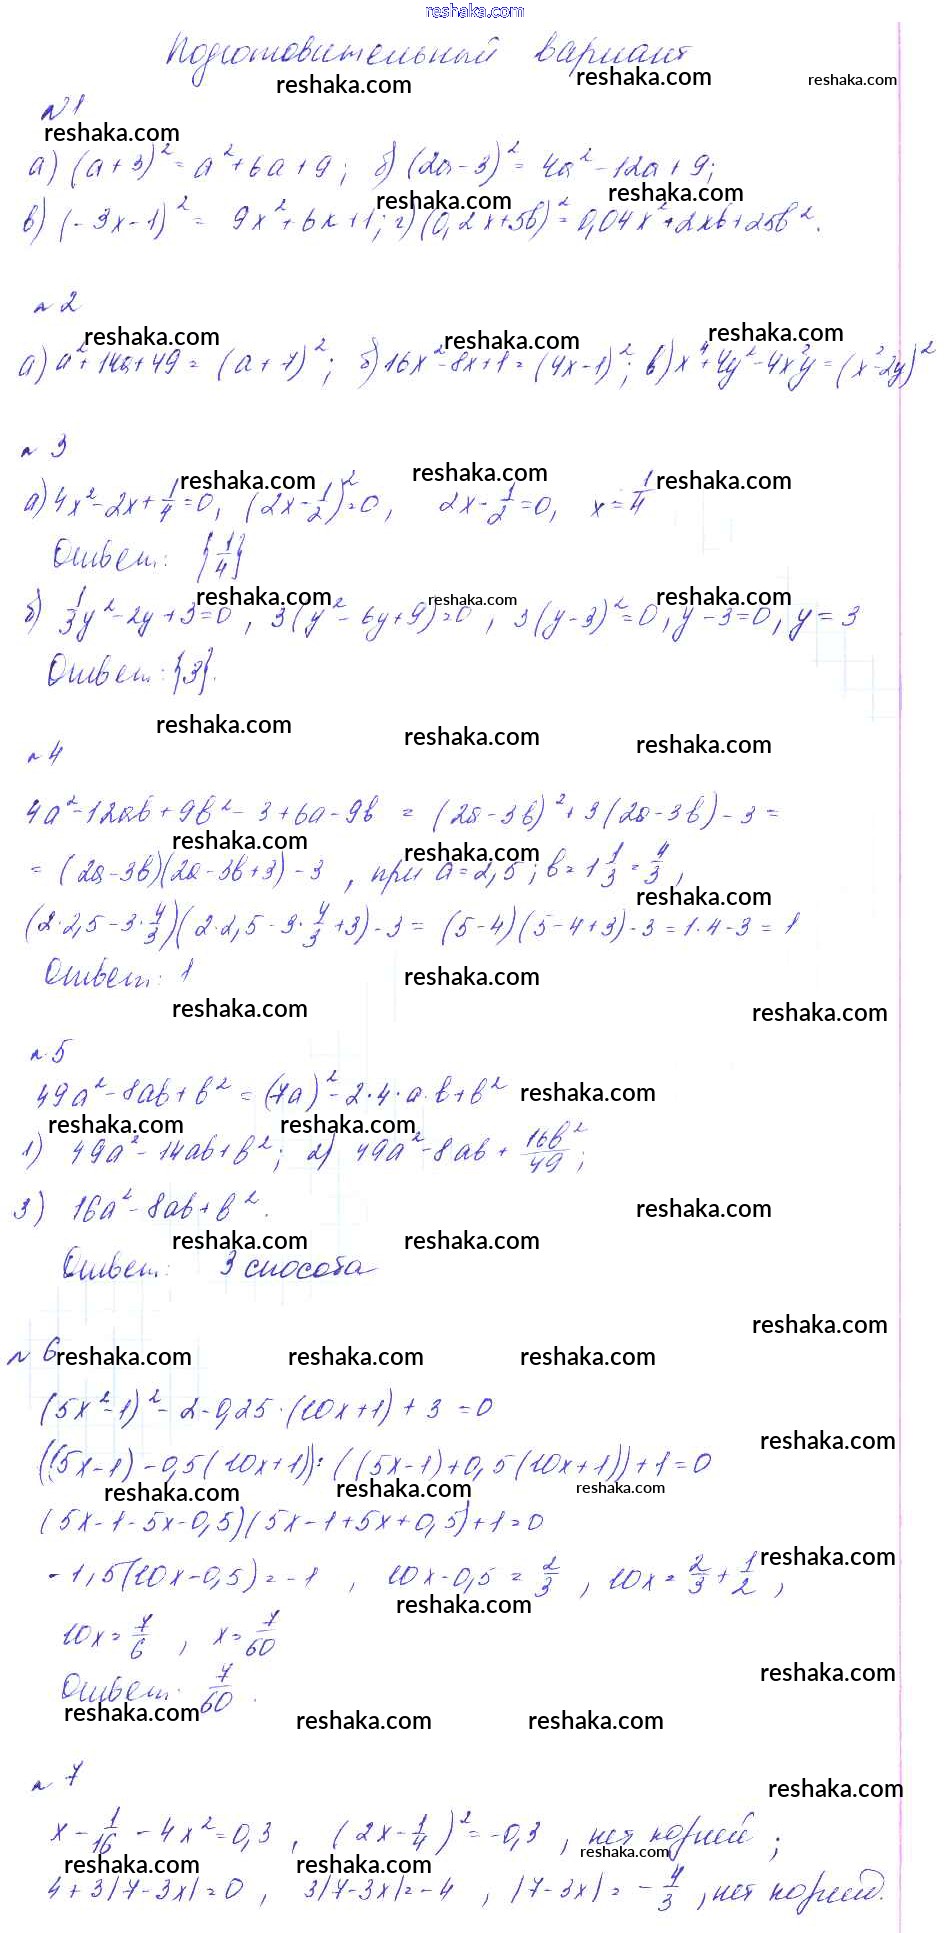 reshaka.com
Подготовительный вариант
reshaka.com reshaka.com reshaka.com
№1
reshaka.com
а) (a+3)² = a²+6a+9; б) (2a-3)² = 4a²-12a+9;
reshaka.com reshaka.com
в) (-3x-1)² = 9x²+6x+1; г) (0,2x+5b)² = 0,04x²+2xb+25b².
№2
reshaka.com reshaka.com reshaka.com
а) a²+14a+49 = (a+7)²; б) 16x²-8x+1 = (4x-1)²; в) x⁴+4y²-4x²y = (x²-2y)²
№3
reshaka.com reshaka.com reshaka.com
а) 4x²-2x+1/4=0, (2x-1/2)²=0, 2x-1/2=0, x=1/4
Ответ: {1/4}
reshaka.com reshaka.com reshaka.com
б) 1/3y²-2y+3=0, 3(y²-6y+9)=0, 3(y-3)²=0, y-3=0, y=3
Ответ: {3}.
reshaka.com reshaka.com reshaka.com
№4
4a²-12ab+9b²-3+6a-9b = (2a-3b)²+3(2a-3b)-3=
reshaka.com reshaka.com
= (2a-3b)(2a-3b+3)-3, при a=2,5; b=1 1/3=4/3,
reshaka.com
(2·2,5-3·4/3)(2·2,5-3·4/3+3)-3 = (5-4)(5-4+3)-3=1·4-3=1
Ответ: 1
reshaka.com
reshaka.com reshaka.com
№5
49a²-8ab+b² = (7a)²-2·4·a·b+b²
reshaka.com
reshaka.com reshaka.com
1) 49a²-14ab+b²; 2) 49a²-8ab+16b²/49;
3) 16a²-8ab+b².
reshaka.com
reshaka.com reshaka.com
Ответ: 3 способа
reshaka.com
№6
reshaka.com reshaka.com reshaka.com
(5x²-1)²-2-0,25·(10x+1)+3=0
reshaka.com
((5x-1)-0,5(10x+1))·((5x-1)+0,5(10x+1))+1=0
reshaka.com reshaka.com reshaka.com
(5x-1-5x-0,5)(5x-1+5x+0,5)+1=0
reshaka.com
-1,5(10x-0,5)=-1, 10x-0,5=2/3, 10x=2/3+1/2,
reshaka.com
10x=7/6, x=7/60
reshaka.com
Ответ: 7/60.
reshaka.com reshaka.com reshaka.com
№7
reshaka.com
x-1/16-4x²=0,3, (2x-1/4)²=-0,3, нет корней;
reshaka.com reshaka.com reshaka.com
4+3|7-3x|=0, 3|7-3x|=-4, |7-3x|=-4/3, нет корней.